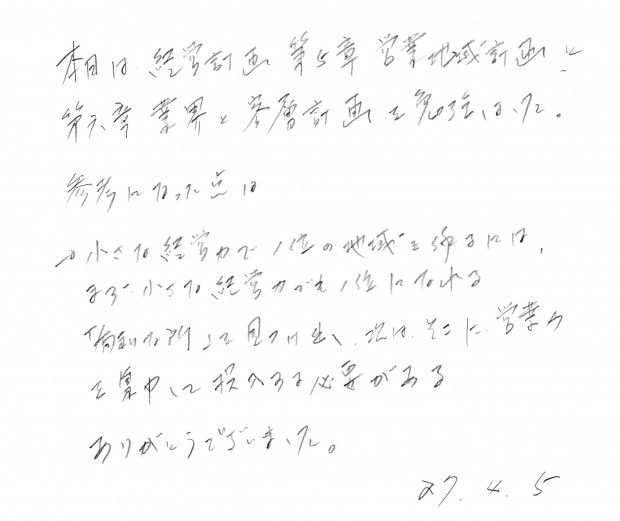 本日は 経営計画 第5章 営業地域計画と
第六章 業界と客層計画を勉強した。
参考になった点は
小さな経営力で1位の地域を作るには、
まず小さな経営力でも1位になれる
有利な所を見つけ出し、次は、そこに営業力
を集中して投入する必要がある
ありがとうございました。
27. 4. 5